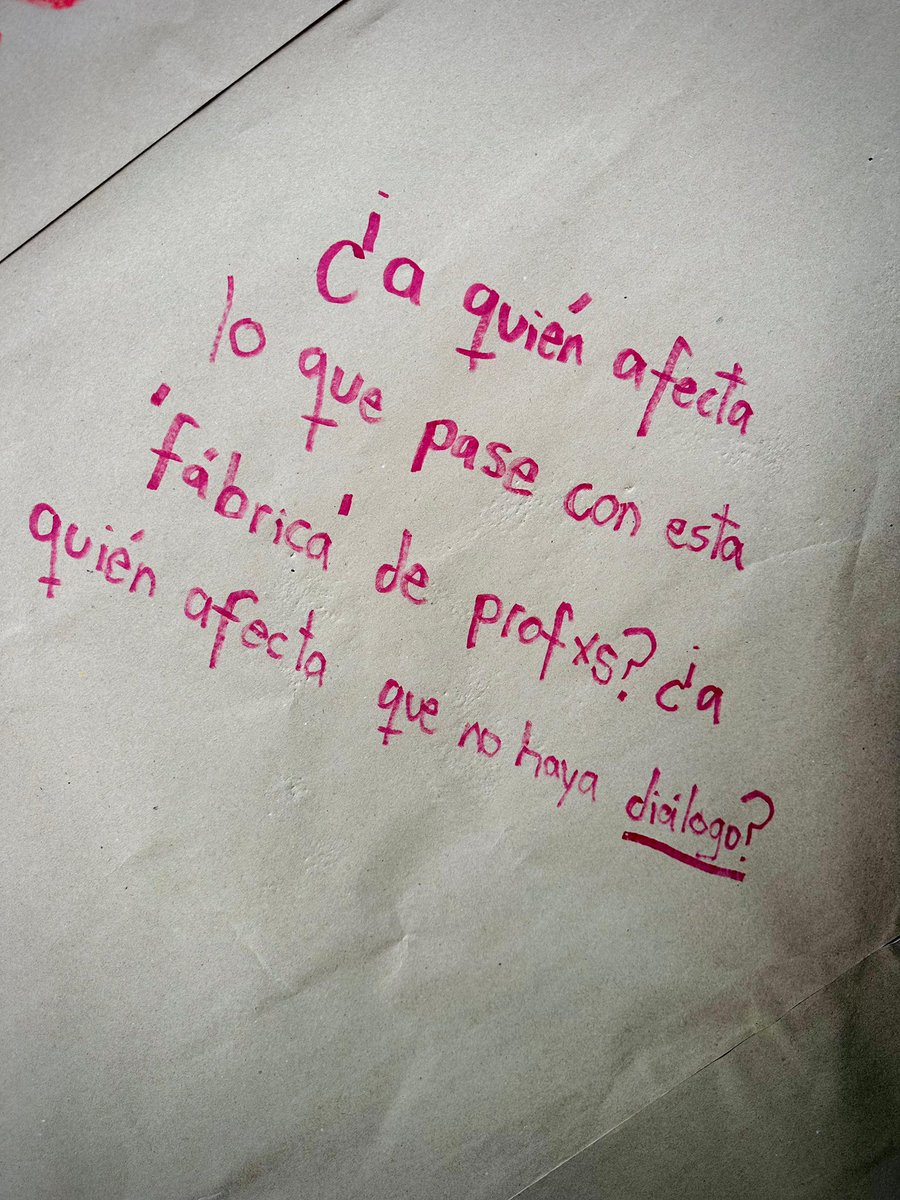 ¿a quién afecta
lo que pase con esta
'fábrica' de profxs? ¿a
quién afecta que no haya diálogo?